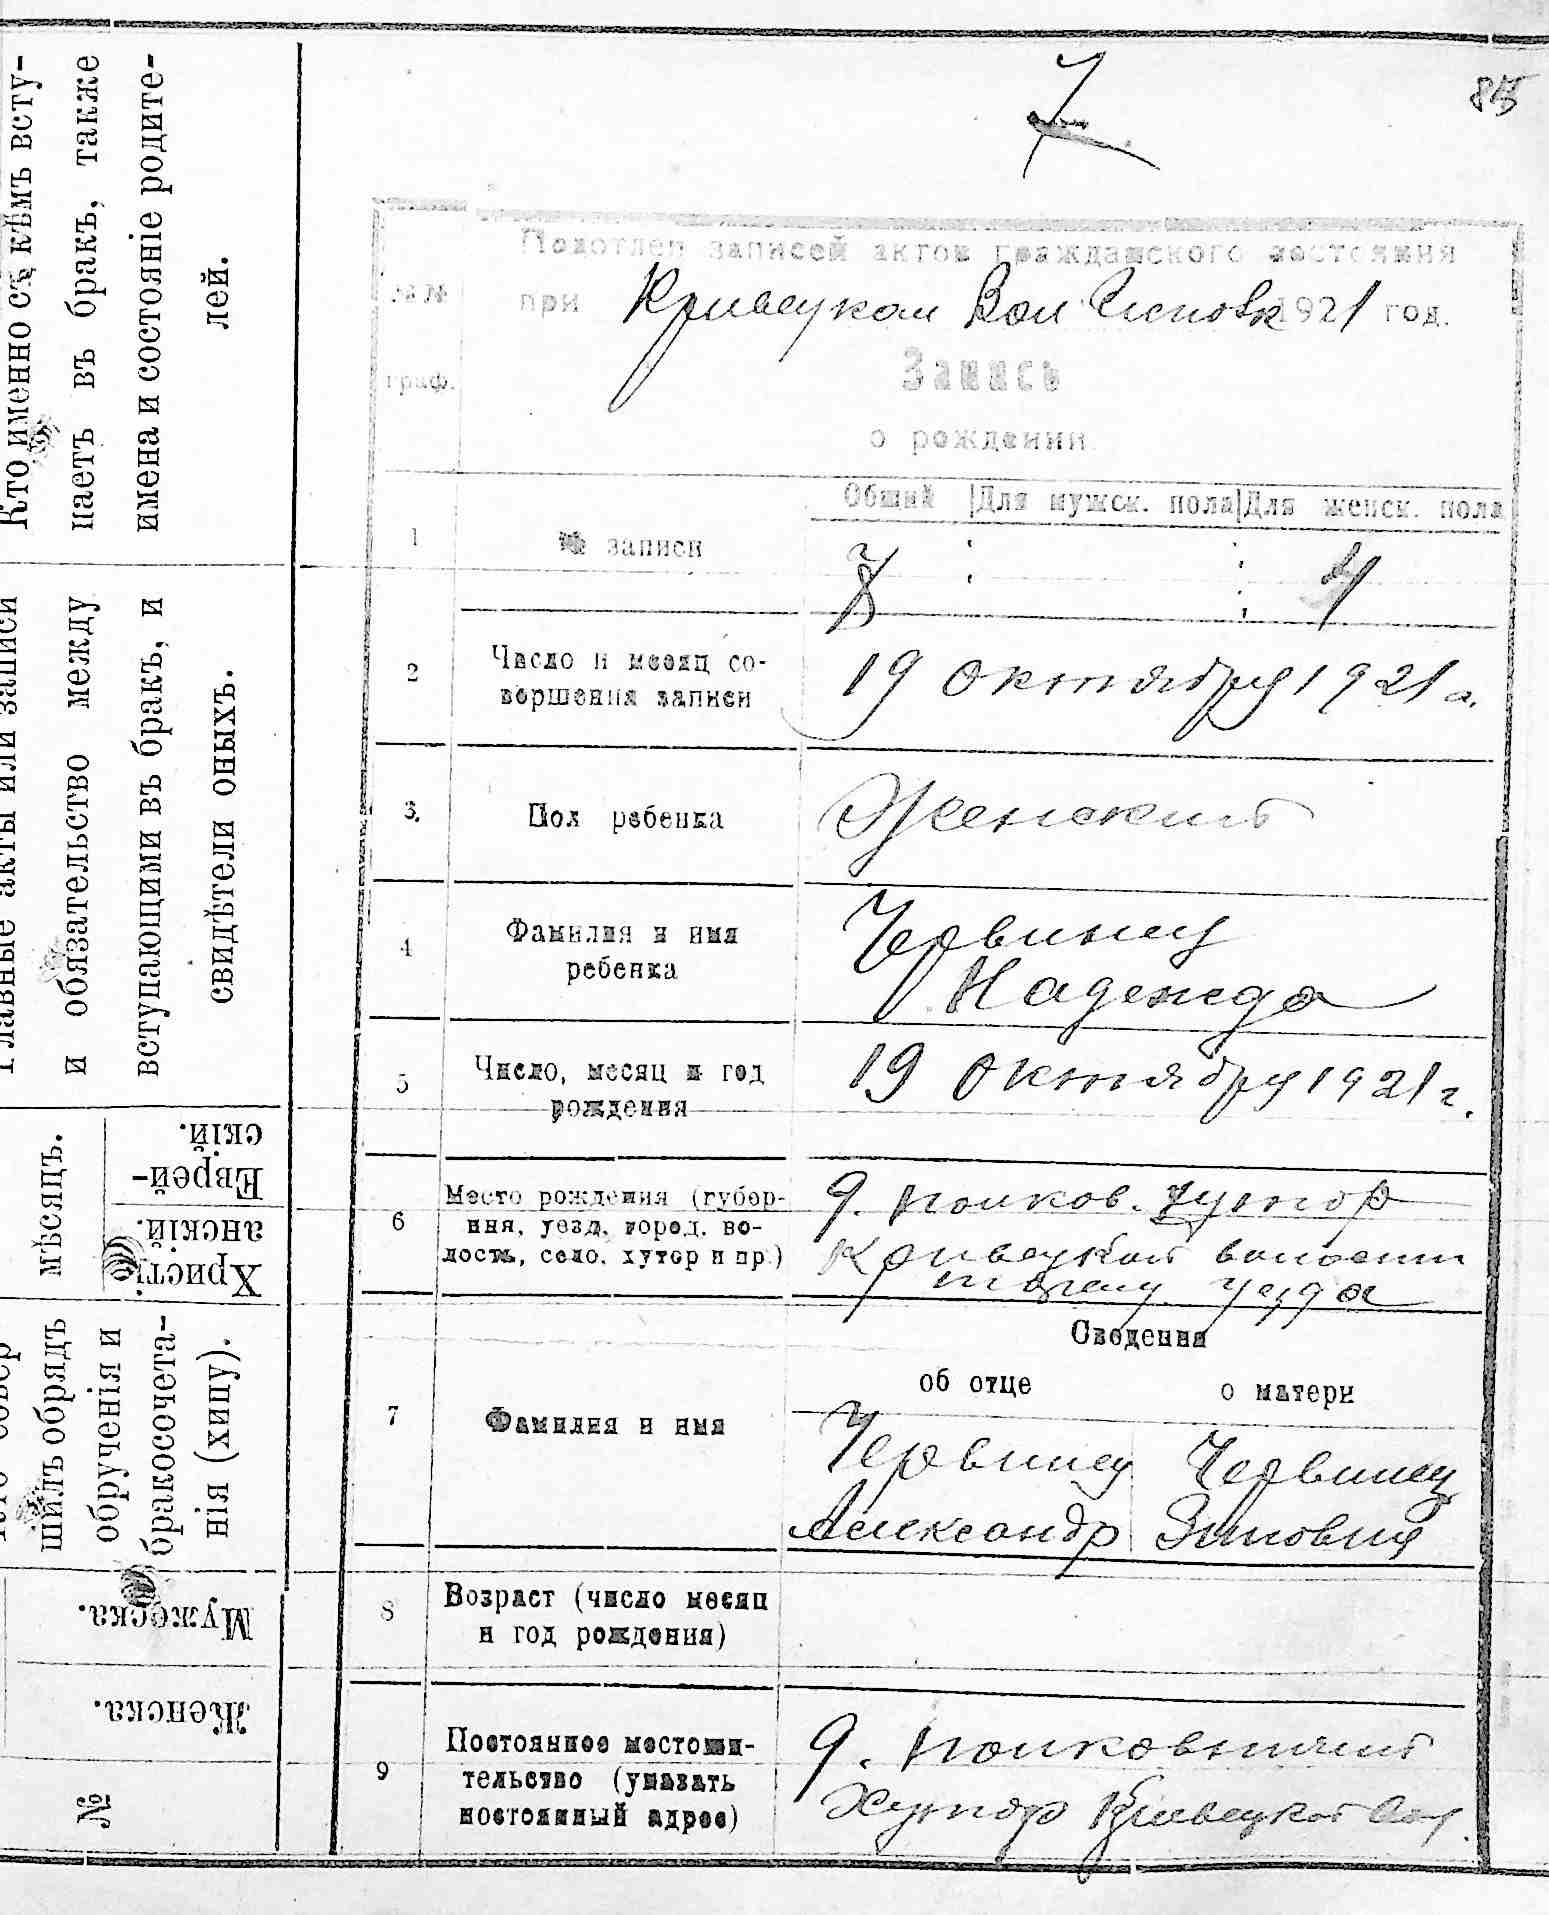 Кто именно съ кѣмъ всту-
паетъ въ бракъ, также
имена и состояніе родите-
лей.
Главные акты или записи
и обязательство между
вступающими въ бракъ, и
свидѣтели оныхъ.
мѣсяцъ.
Еврей-
скій.
Христі-
анскій.
шилъ обрядъ
обрученія и
бракосочета-
нія (хипу).
Мужеска.
Женска.
№
7
Подотдел записей актов гражданского состояния
№№ при Кривецком Вол Исповк 1921 год.
граф. Запись
о рождении
Общий Для мужск. пола Для женск. пола
1 № записи 7 4
2 Число и месяц со-
вершения записи 19 Октября 1921 г.
3. Пол ребенка Женский
4 Фамилия и имя
ребенка Червинец
Надежда
5 Число, месяц и год
рождения 19 Октября 1921 г.
6 Место рождения (губер-
ния, уезд, город, во-
лость, село, хутор и пр.) д. Полков. Хутор
Кривецкой волости
уезда
Сведения
об отце о матери
7 Фамилия и имя Червинец Червинец
Александр Зиновия
8 Возраст (число месяц
и год рождения)
9 Постоянное местожи-
тельство (указать
постоянный адрес) д. Полковничий
Хутор Кривецкой Вол.